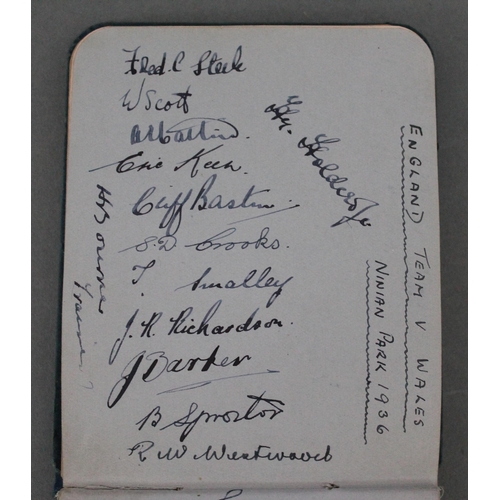 Fred. C Steele
W Scott
Eric Keen
Cliff Bastin
S. D. Crooks.
T. Smalley
J. R. Richardson.
J Barker
B Sproston
R. W. Westwood
Hy. Holdcroft
ENGLAND TEAM V WALES
NINIAN PARK 1936
H Bourne
Trainer